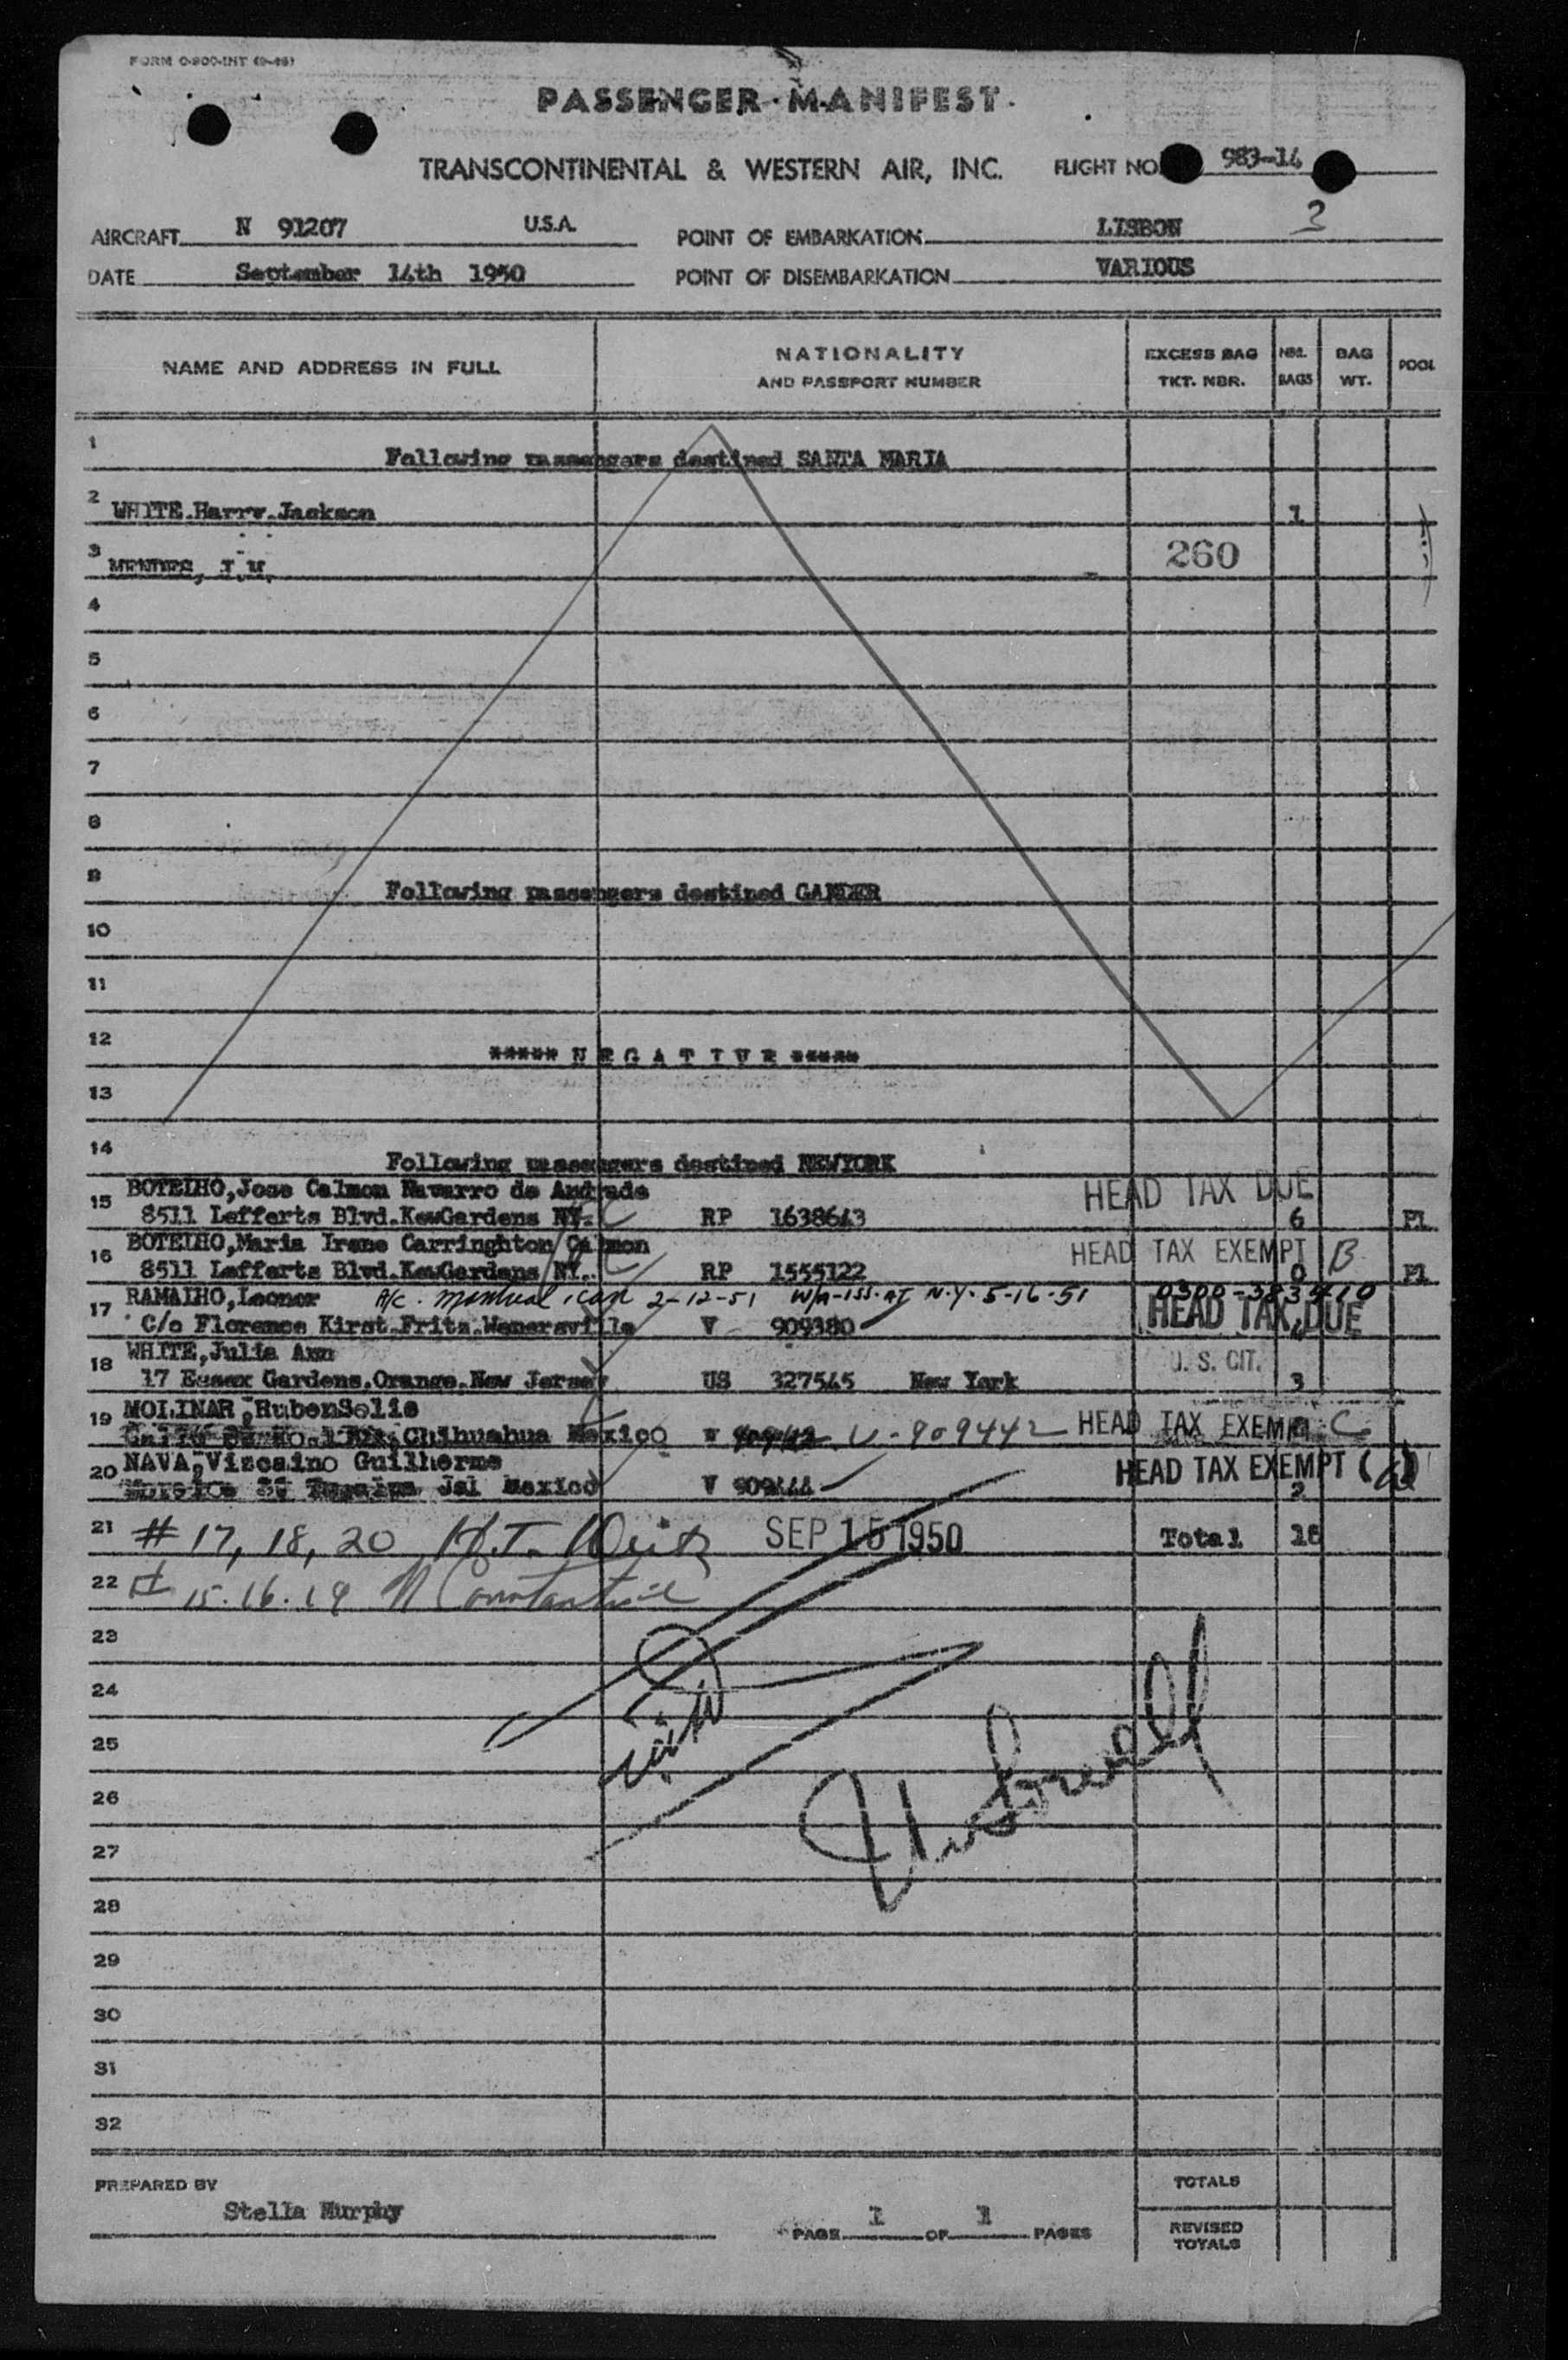 FORM O-800-INT (9-48)
PASSENGER MANIFEST
TRANSCONTINENTAL & WESTERN AIR, INC. FLIGHT NO. 983-14
AIRCRAFT N 91207 U.S.A. POINT OF EMBARKATION LISBON 3
DATE September 14th 1950 POINT OF DISEMBARKATION VARIOUS
NAME AND ADDRESS IN FULL NATIONALITY AND PASSPORT NUMBER EXCESS BAG TKT. NBR. NBR. BAGS BAG WT. POOL
1 Following passengers destined SANTA MARIA
2 WHITE.Harry.Jackson 1
3 MENDES, J.M. 260
4
5
6
7
8
9 Following passengers destined GANDER
10
11
12 ***** N E G A T I V E *****
13
14 Following passengers destined NEWYORK
15 BOTELHO,Jose Calmon Navarro de Andrade HEAD TAX DUE
8511 Lefferts Blvd.KewGardens NY. RP 1638643 6 P1
16 BOTELHO,Maria Irene Carringhton Calmon HEAD TAX EXEMPT B
8511 Lefferts Blvd.KewGardens NY. RP 1555122 0 P1
17 RAMALHO,Leonor 2-12-51 N.Y. 5-16-51 HEAD TAX DUE
C/o Florence Kirst.Fritz.Wenersville V 909380
18 WHITE,Julia Ann U. S. CIT.
17 Essex Gardens.Orange.New Jersey US 327545 New York 3
19 MOLINAR,RubenSolis
Chihuahua Mexico V-909442 HEAD TAX EXEMPT C
20 NAVA,Viscaino Guilherme HEAD TAX EXEMPT
Jal Mexico V 909444 2
21 # 17, 18, 20 H.T. SEP 15 1950 Total 16
22 # 15.16.19 N Constantine
23
24
25
26
27
28
29
30
31
32
PREPARED BY Stella Murphy PAGE 1 OF 1 PAGES TOTALS
REVISED TOTALS